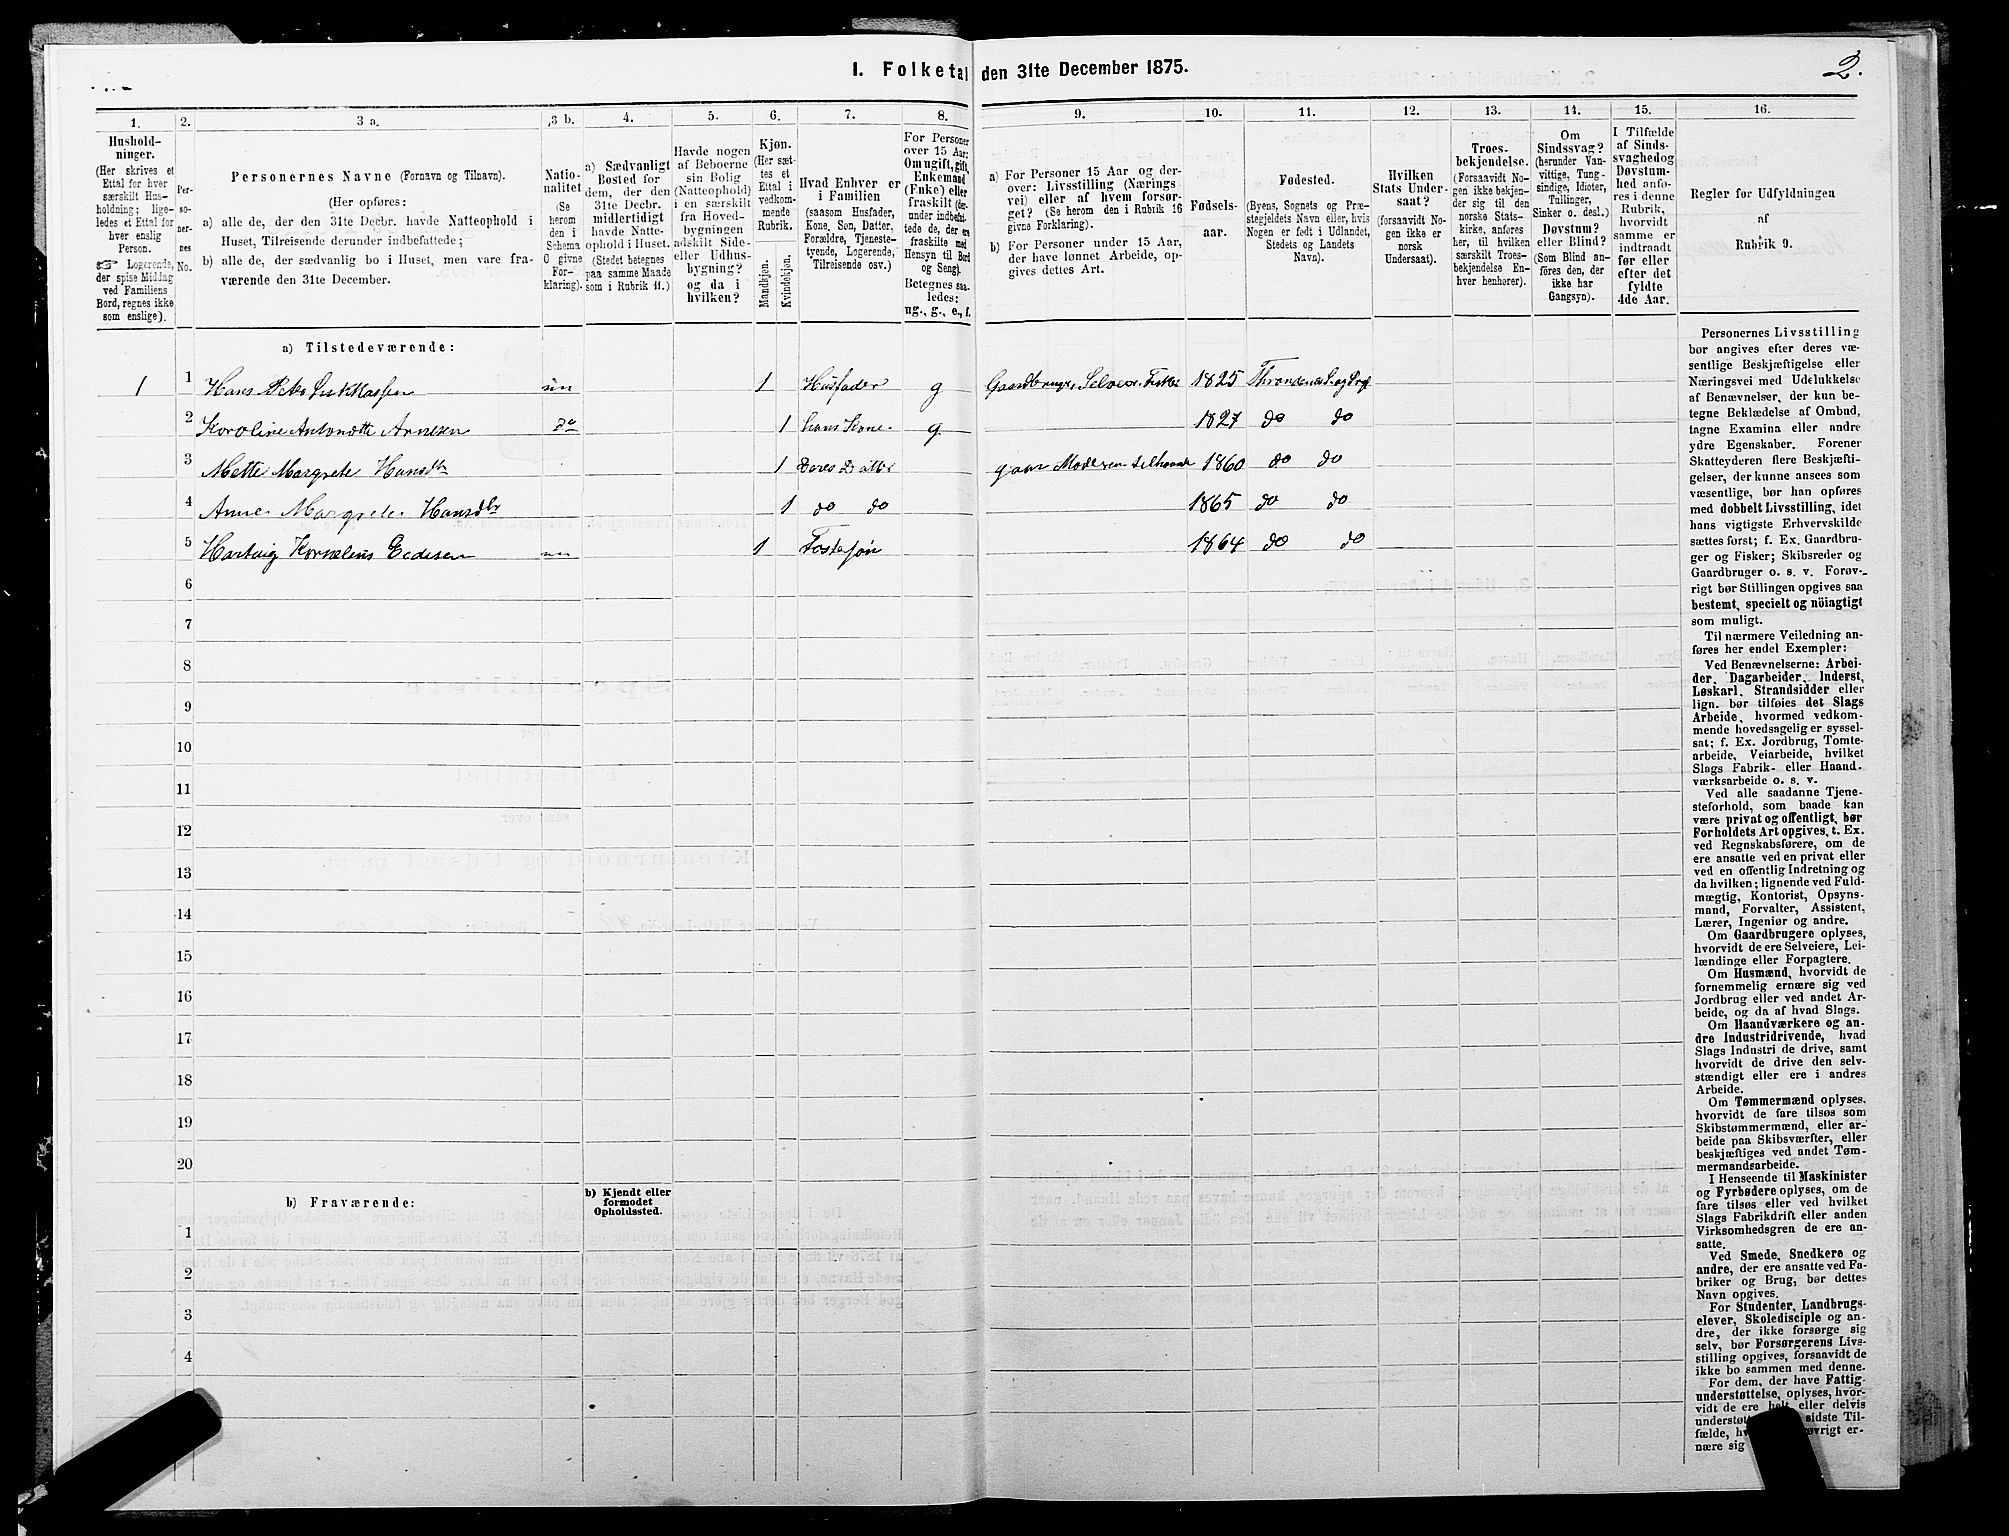 1. Folketal den 31te December 1875.
2.
1.
Hushold-
ninger.
(Her skrives et
Ettal for hver
særskilt Hus-
holdning; lige-
ledes et Ettal for
hver enslig
Person.
Logerende,
der spise Middag
ved Familiens
Bord, regnes ikke
som enslige).
2.
Per-
so-
ner-
nes
No.
3 a.
Personernes Navne (Fornavn og Tilnavn).
(Her opføres:
a) alle de, der den 31te Decbr. havde Natteophold i
Huset, Tilreisende derunder indbefattede;
b) alle de, der sædvanlig bo i Huset, men vare fra-
værende den 31te December.
3 b.
Natio-
nalitet
(Se
herom
den i
Schema
C givne
For-
klaring).
4.
a) Sædvanligt
Bosted for
dem, der den
31te Decbr.
midlertidigt
havde Natte-
ophold i Huset.
(Stedet betegnes
paa samme Maade
som i Rubrik 11.)
5.
Havde nogen
af Beboerne
sin Bolig
(Natteophold)
i en særskilt
fra Hoved-
bygningen
adskilt Side-
eller Udhus-
bygning?
og da i
hvilken?
6.
Kjøn.
(Her sæt-
tes et
Ettal i
vedkom-
mende
Rubrik.
Mandkjøn.
Kvindekjøn.
7.
Hvad Enhver er
i Familien
(saasom Husfader,
Kone, Søn, Datter,
Forældre, Tjeneste-
tyende, Logerende,
Tilreisende osv.)
8.
For Personer
over 15 Aar:
Om ugift, gift,
Enkemand
(Enke) eller
fraskilt (der-
under indbefat-
tede de, der ere
fraskilte med
Hensyn til Bord
og Seng).
Betegnes saa-
ledes:
ug., g., e., f.
9.
a) For Personer 15 Aar og der-
over: Livsstilling (Nærings-
vei) eller af hvem forsør-
get? (Se herom den i Rubrik 16
givne Forklaring).
b) For Personer under 15 Aar,
der have lønnet Arbeide, op-
gives dettes Art.
10.
Fødsels-
aar.
11.
Fødested.
(Byens, Sognets og Præ-
stegjeldets Navn eller, hvis
Nogen er født i Udlandet,
Stedets og Landets
Navn).
12.
Hvilken
Stats Under-
saat?
(forsaavidt No-
gen ikke er
norsk
Undersaat).
13.
Troes-
bekjendelse.
(Forsaavidt No-
gen ikke bekjen-
der sig til den
norske Stats-
kirke, anføres
her, til hvilken
særskilt Troes-
bekjendelse En-
hver henhører).
14.
Om
Sindssvag?
(herunder Van-
vittige, Tung-
sindige, Idioter,
Tullinger,
Sinker o. desl.)
Døvstum?
eller Blind?
(Som Blind an-
føres den, der
ikke har
Gangsyn).
15.
I Tilfælde
af Sinds-
svaghed og
Døvstum-
hed anfø-
res i denne
Rubrik,
hvorvidt
samme er
indtraadt
før eller
efter det
fyldte
4de Aar.
16.
Regler for Udfyldningen
af
Rubrik 9.
a) Tilstedeværende:
1 1 Hans Peter 1 Husfader g Gaardbruger Selveier 1825
2 Karoline Antonette Arnesen do 1 hans Kone g 1827 do do
3 Mette Margrete Hansdtr 1 Deres Datter 1860 do do
4 Anne Margrete Hansdtr 1 do do 1865 do do
5 Hartvig Kornelius 1 Fostersøn 1864 do do
6
7
8
9
10
11
12
13
14
15
16
17
18
19
20
b) Fraværende:
b) Kjendt eller
formodet
Opholdssted.
1
2
3
4
Personernes Livsstilling
bør angives efter deres væ-
sentlige Beskjæftigelse eller
Næringsvei med Udelukkelse
af Benævnelser, der kun be-
tegne Beklædelse af Ombud,
tagne Examina eller andre
ydre Egenskaber. Forener
Skatteyderen flere Beskjæfti-
gelser, der kunne ansees som
væsentlige, bør han opføres
med dobbelt Livsstilling, idet
hans vigtigste Erhvervskilde
sættes først; f. Ex. Gaardbru-
ger og Fisker; Skibsreder og
Gaardbruger o. s. v. Forøv-
rigt bør Stillingen opgives saa
bestemt, specielt og nöiagtigt
som muligt.
Til nærmere Veiledning an-
føres her endel Exempler:
Ved Benævnelserne: Arbei-
der, Dagarbeider, Inderst,
Løskarl, Strandsidder eller
lign. bør tilføies det Slags
Arbeide, hvormed vedkom-
mende hovedsagelig er syssel-
sat; f. Ex. Jordbrug, Tomte-
arbeide, Veiarbeide, hvilket
Slags Fabrik- eller Haand-
værksarbeide o. s. v.
Ved alle saadanne Tjene-
steforhold, som baade kan
være privat og offentligt, bør
Forholdets Art opgives, t. Ex.
ved Regnskabsførere, om de
ere ansatte ved en privat eller
ved en offentlig Indretning og
da hvilken; lignende ved Fuld-
mægtig, Kontorist, Opsyns-
mand, Forvalter, Assistent,
Lærer, Ingeniør og andre.
Om Gaardbrugere oplyses,
hvorvidt de ere Selveiere, Lei-
lændinge eller Forpagtere.
Om Husmænd, hvorvidt de
fornemmelig ernære sig ved
Jordbrug eller ved andet Ar-
beide, og da af hvad Slags.
Om Haandværkere og an-
dre Industridrivende, hvad
Slags Industri de drive, samt
hvorvidt de drive den selv-
stændigt eller ere i andres
Arbeide.
Om Tømmermænd oplyses,
hvorvidt de fare tilsøs som
Skibstømmermænd, eller ar-
beide paa Skibsværfter, eller
beskjæftiges ved andet Tøm-
mermandsarbeide.
I Henseende til Maskinister
og Fyrbødere oplyses, om de
fare tilsøs eller ved hvilket
Slags Fabrikdrift eller anden
Virksomhedsgren de ere an-
satte.
Ved Smede, Snedkere og
andre, der ere ansatte ved Fa-
briker og Brug, bør dettes
Navn opgives.
For Studenter, Landbrugs-
elever, Skoledisciple og an-
dre, der ikke forsørge sig
selv, bør Forsørgerens Livs-
stilling opgives, forsaavidt de
ikke bo sammen med denne.
For dem, der have Fattig-
understøttelse, oplyses, hvor-
vidt de ere helt eller delvis
sidste Til-
fælde,
øvrigt er-
nære sig